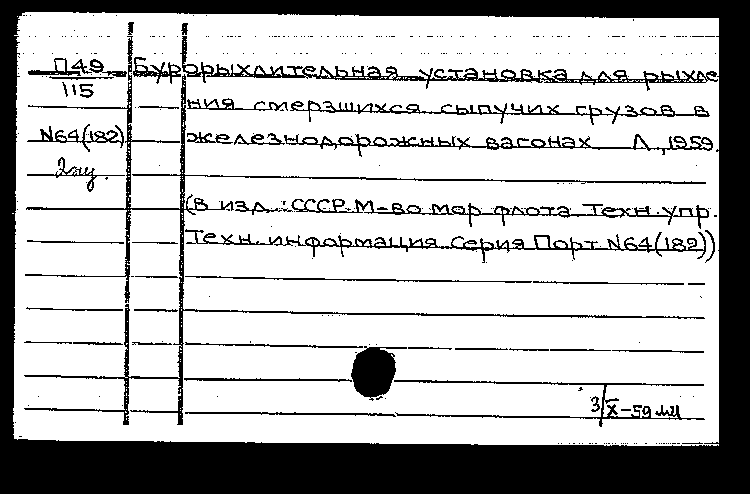 П49 Бурорыхлительная установка для рыхле
115
ния смерзшихся сыпучих грузов в
N64(182) железнодорожных вагонах Л., 1959.
2 экз.
(В изд.: СССР. М-во мор флота Техн. упр.
Техн. информация Серия Порт N64(182))
3/X-59